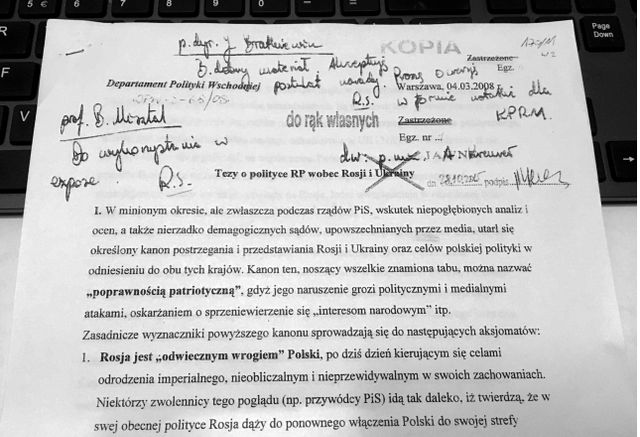 5 €
R
F
V
Page
Down
p. dyr. J. Bratkiewicz
KOPIA
Zastrzeżone
Egz.
B. dobry materiał. Akceptuję
Departament Polityki Wschodniej
postulat narady. Proszę
Warszawa, 04.03.2008
R.S.
w formie notatki dla
KPRM.
prof. B.
do rąk własnych
Zastrzeżone
Egz. nr
Do wykorzystania w
expose.
R.S.
Tezy o polityce RP wobec Rosji i Ukrainy
dn podpis
I. W minionym okresie, ale zwłaszcza podczas rządów PiS, wskutek niepogłębionych analiz i
ocen, a także nierzadko demagogicznych sądów, upowszechnianych przez media, utarł się
określony kanon postrzegania i przedstawiania Rosji i Ukrainy oraz celów polskiej polityki w
odniesieniu do obu tych krajów. Kanon ten, noszący wszelkie znamiona tabu, można nazwać
„poprawnością patriotyczną”, gdyż jego naruszenie grozi politycznymi i medialnymi
atakami, oskarżaniem o sprzeniewierzenie się „interesom narodowym” itp.
Zasadnicze wyznaczniki powyższego kanonu sprowadzają się do następujących aksjomatów:
1. Rosja jest „odwiecznym wrogiem” Polski, po dziś dzień kierującym się celami
odrodzenia imperialnego, nieobliczalnym i nieprzewidywalnym w swoich zachowaniach.
Niektórzy zwolennicy tego poglądu (np. przywódcy PiS) idą tak daleko, iż twierdzą, że w
swej obecnej polityce Rosja dąży do ponownego włączenia Polski do swojej strefy